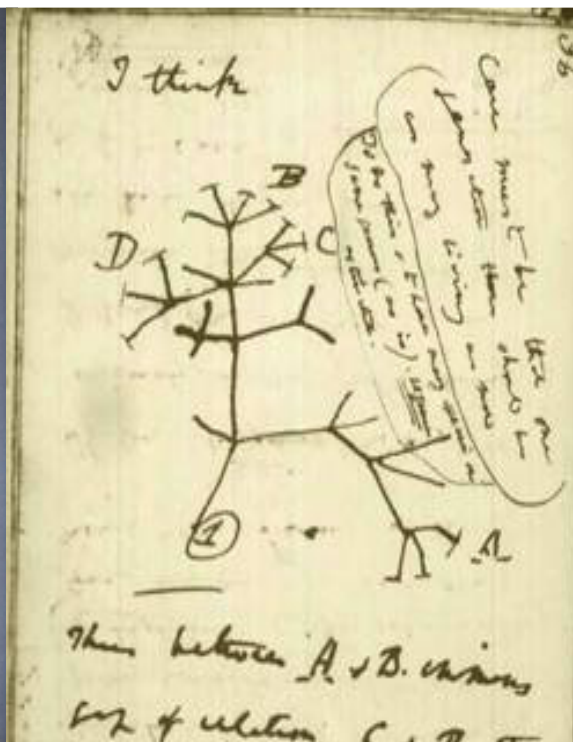 I think
Case must be that one
generation then should be
as many living as now
To do this & to have many species in
same genus (as is) requires
extinction.
B
C
D
A
1
Thus between A & B. immens
gap of relation. C & B. th
36